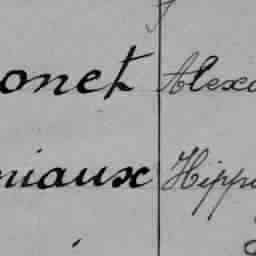 onet Alexa
niaux Hippo